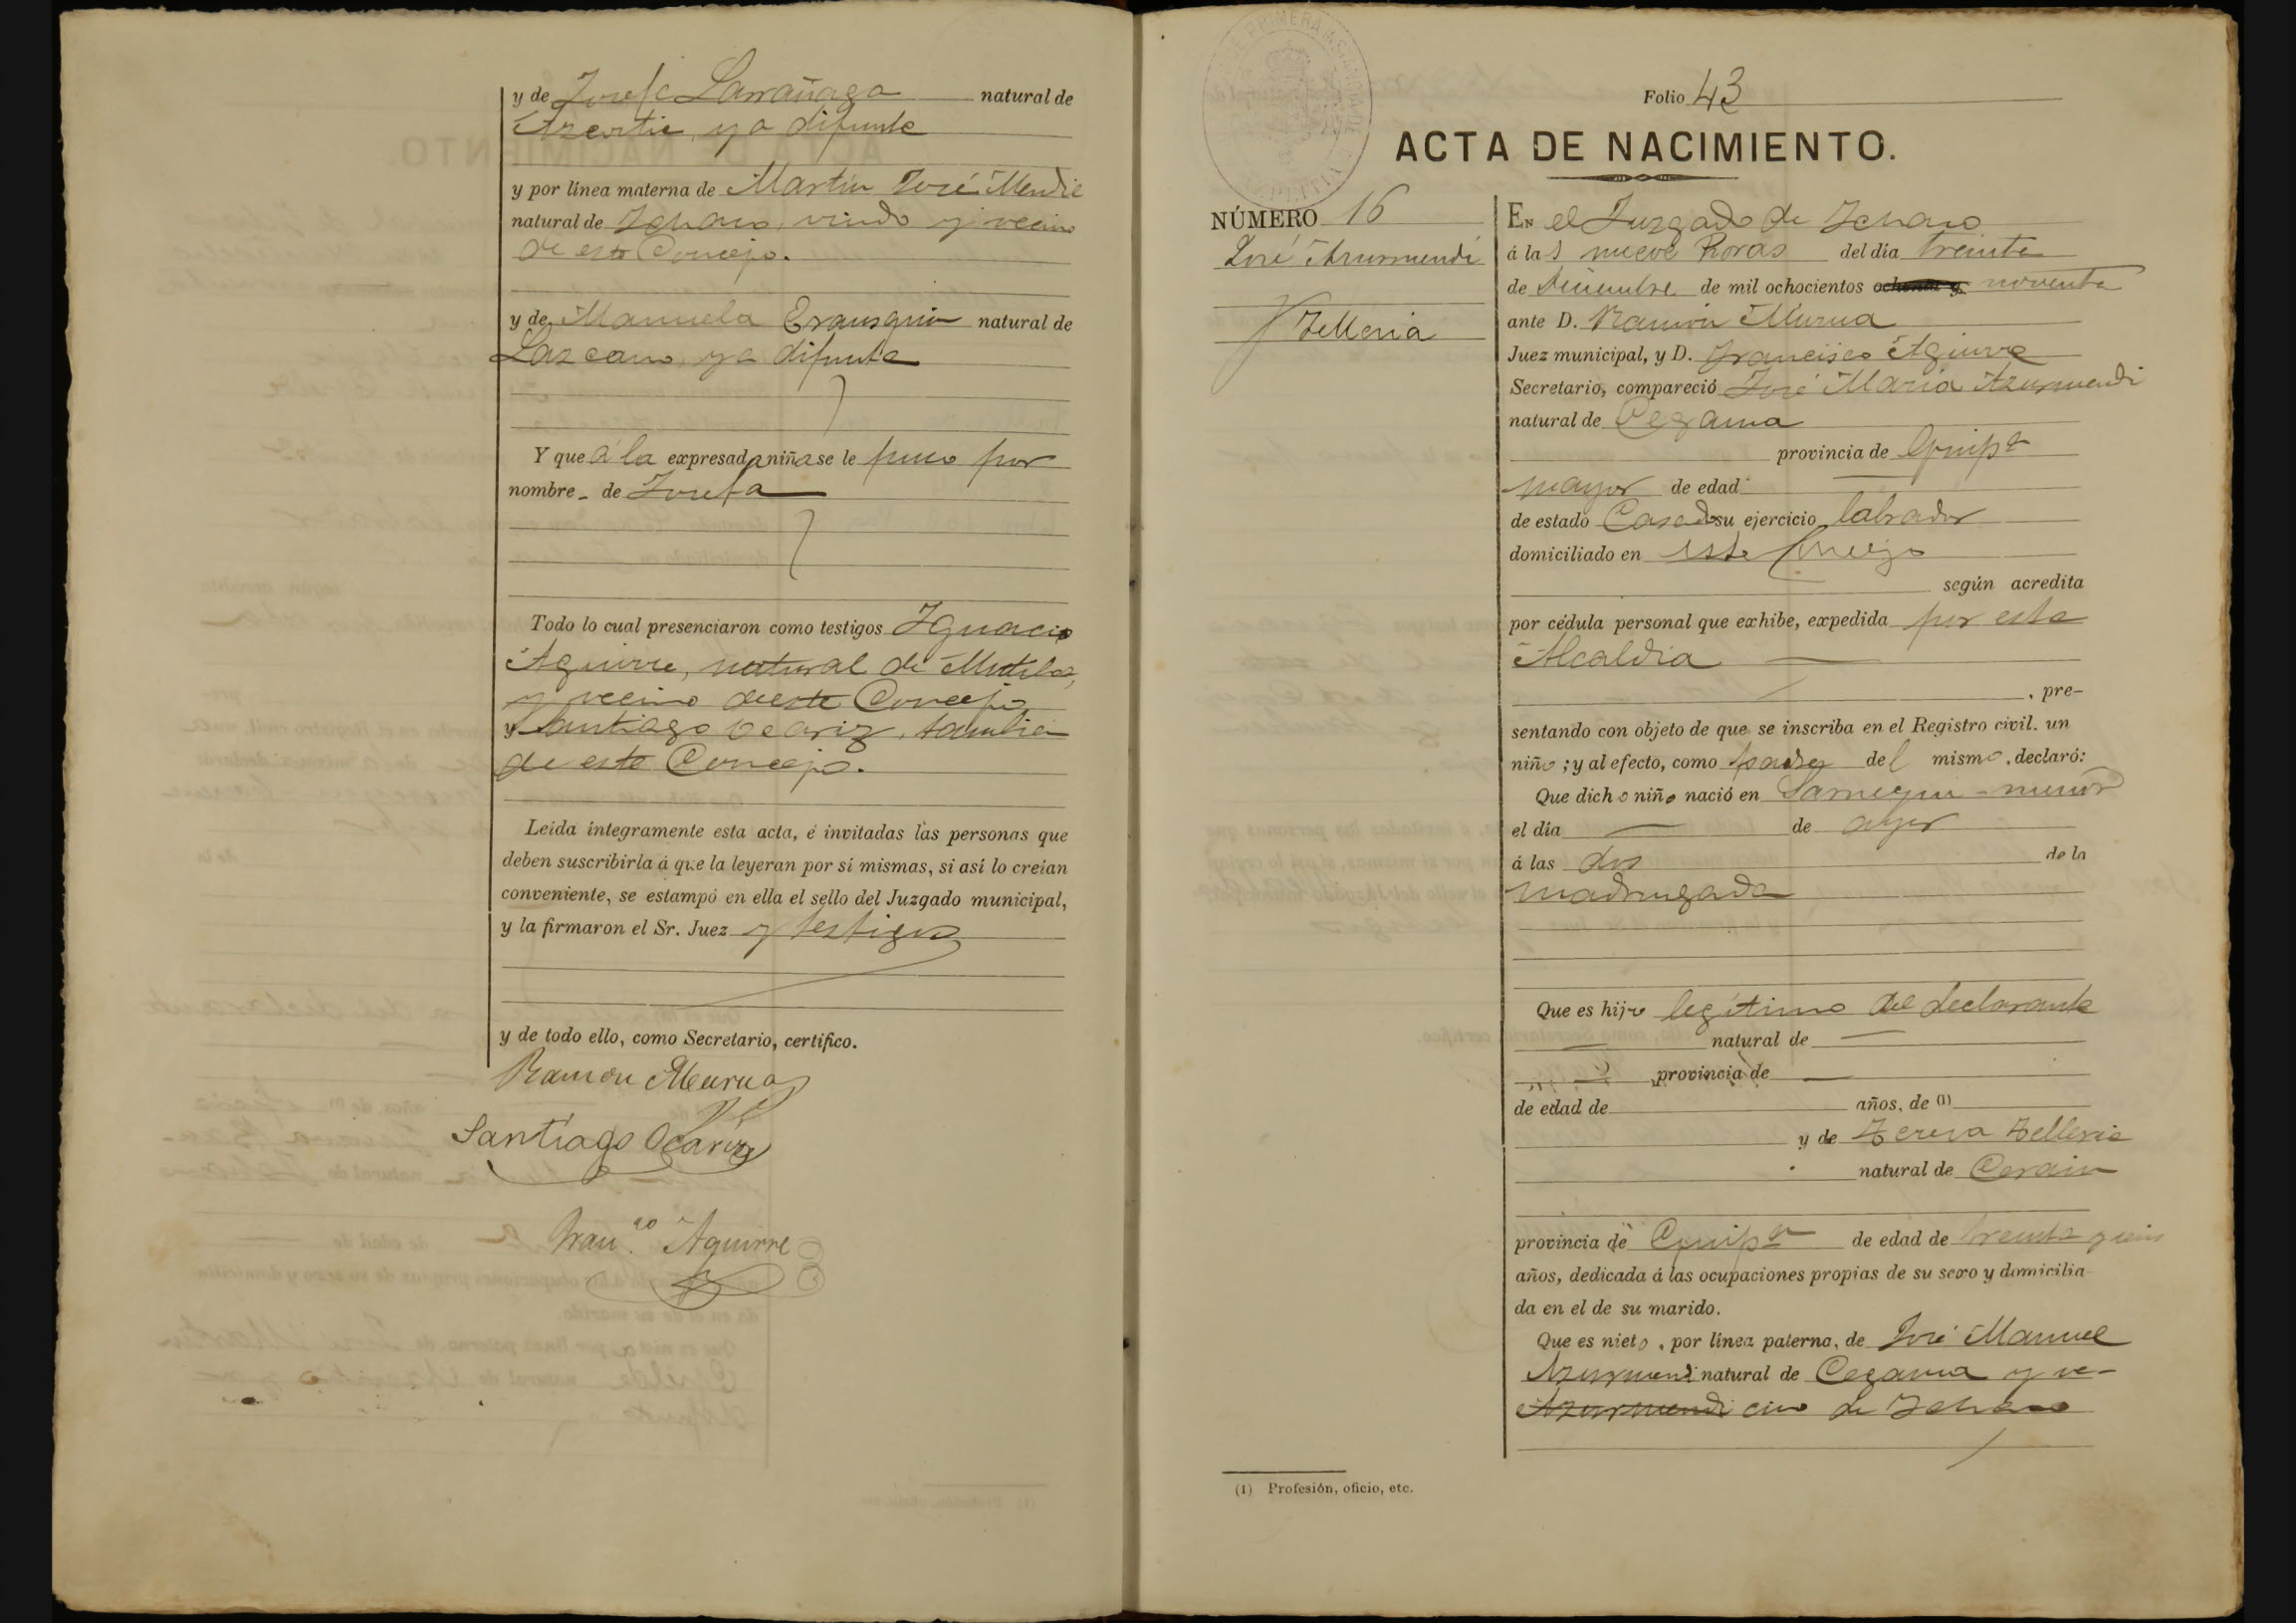 y de Josefa Larrañaga natural de
Azcoitia, ya difunta
y por línea materna de Martin José Mendia
natural de Ichaso, viudo y vecino
de este Concejo.
y de Manuela Erausquin natural de
Lazcano, ya difunta
Y que á la expresada niña se le puso por
nombre de Josefa
Todo lo cual presenciaron como testigos Ignacio
Aguirre, natural de Mutiloa,
y vecino de este Concejo
y Santiago Ocariz, tambien
de este Concejo.
Leida íntegramente esta acta, é invitadas las personas que
deben suscribirla á que la leyeran por sí mismas, si así lo creían
conveniente, se estampó en ella el sello del Juzgado municipal,
y la firmaron el Sr. Juez y testigos
y de todo ello, como Secretario, certifico.
Ramon Murua
Santiago Ocariz
Franco. Aguirre
Folio 43
ACTA DE NACIMIENTO.
NÚMERO 16
José Azurmendi
y Telleria
EN el Juzgado de Ichaso
á las nueve horas del día treinta
de Diciembre de mil ochocientos ochenta y noventa
ante D. Ramon Murua
Juez municipal, y D. Francisco Aguirre
Secretario, compareció José Maria Azurmendi
natural de Cegama
provincia de Guipa
mayor de edad
de estado Casado su ejercicio labrador
domiciliado en este Concejo
según acredita
por cédula personal que exhibe, expedida por esta
Alcaldia
, pre-
sentando con objeto de que se inscriba en el Registro civil. un
niño; y al efecto, como padre del mismo, declaró:
Que dicho niño nació en Sarnegui-menor
el día de ayer
á las dos de la
madrugada
Que es hijo legítimo del declarante
natural de
provincia de
de edad de años, de (1)
y de Teresa Telleria
natural de Cerain
provincia de Guipa de edad de treinta y seis
años, dedicada á las ocupaciones propias de su sexo y domicilia-
da en el de su marido.
Que es nieto, por línea paterna, de José Manuel
Azurmendi natural de Cegama y ve-
Azurmendi cino de Ichaso
(1) Profesión, oficio, etc.